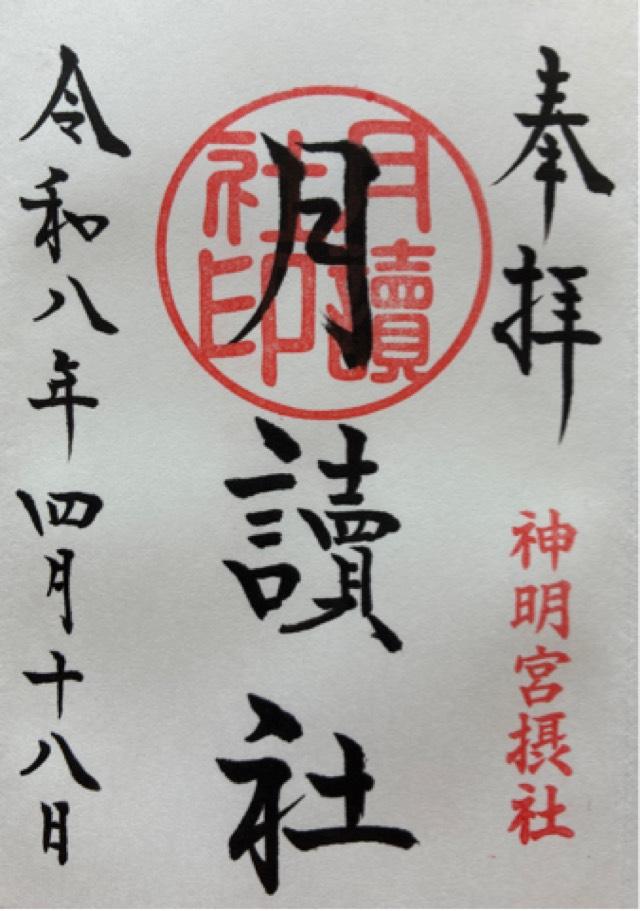 奉拝
神明宮摂社
月讀社
月讀社印
令和八年四月十八日